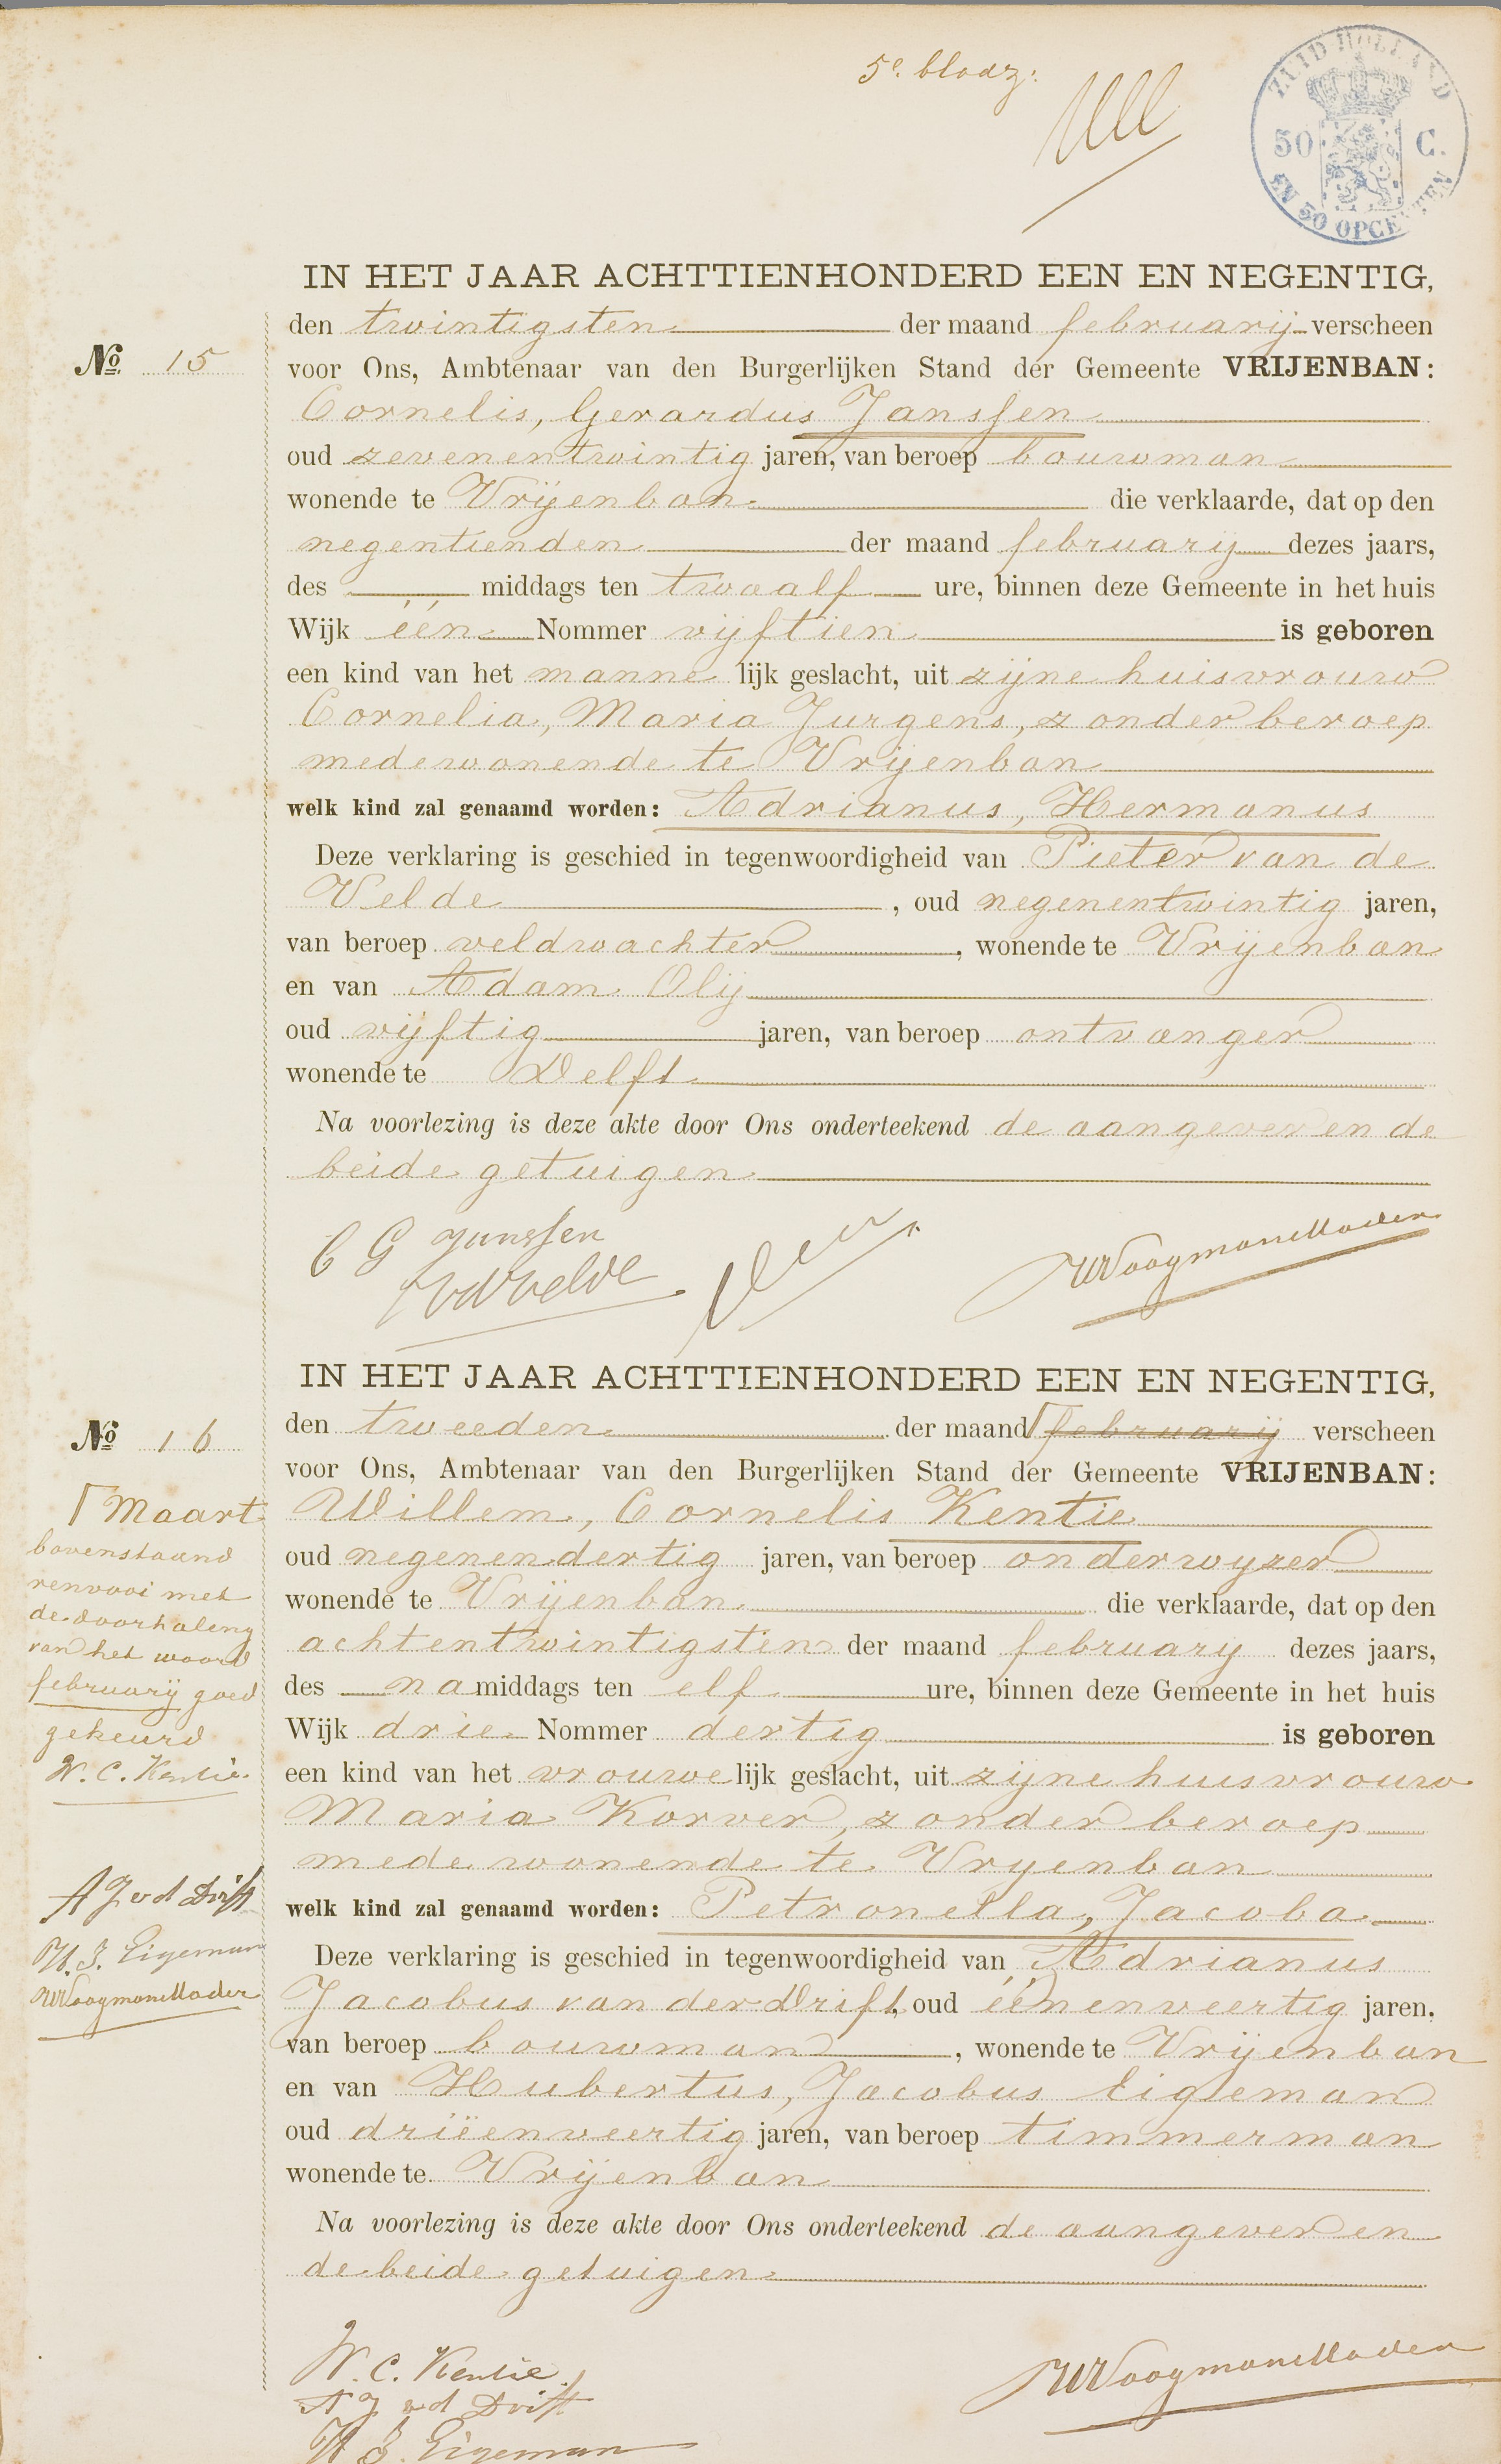 5e. bladz:
ZUID HOLLAND
50 C.
EN 50 OPCENTEN
IN HET JAAR ACHTTIENHONDERD EEN EN NEGENTIG,
den twintigsten der maand februarij verscheen
No. 15
voor Ons, Ambtenaar van den Burgerlijken Stand der Gemeente VRIJENBAN:
Cornelis, Gerardus Janssen
oud zevenentwintig jaren, van beroep bouwman
wonende te Vrijenban die verklaarde, dat op den
negentienden der maand februarij dezes jaars,
des middags ten twaalf ure, binnen deze Gemeente in het huis
Wijk één Nommer vijftien is geboren
een kind van het manne lijk geslacht, uit zijne huisvrouw
Cornelia, Maria Jurgens, zonder beroep
medewonende te Vrijenban
welk kind zal genaamd worden: Adrianus, Hermanus
Deze verklaring is geschied in tegenwoordigheid van Pieter van de
Velde , oud negenentwintig jaren,
van beroep veldwachter , wonende te Vrijenban
en van Adam Olij
oud vijftig jaren, van beroep ontvanger
wonende te Delft
Na voorlezing is deze akte door Ons onderteekend de aangever en de
beide getuigen
C G Janssen
PvdVelde
IN HET JAAR ACHTTIENHONDERD EEN EN NEGENTIG,
den tweeden der maand februarij verscheen
No 16
voor Ons, Ambtenaar van den Burgerlijken Stand der Gemeente VRIJENBAN:
Willem, Cornelis Kentie
oud negenendertig jaren, van beroep onderwyzer
wonende te Vrijenban die verklaarde, dat op den
achtentwintigsten der maand februarij dezes jaars,
des na middags ten elf ure, binnen deze Gemeente in het huis
Wijk drie Nommer dertig is geboren
een kind van het vrouwe lijk geslacht, uit zijne huisvrouw
Maria Korver, zonder beroep
mede wonende te Vryenban
welk kind zal genaamd worden: Petronella, Jacoba
Deze verklaring is geschied in tegenwoordigheid van Adrianus
Jacobus van der Drift, oud éénenveertig jaren,
van beroep bouwman , wonende te Vrijenban
en van Hubertus, Jacobus Eigeman
oud drieënveertig jaren, van beroep timmerman
wonende te Vrijenban
Na voorlezing is deze akte door Ons onderteekend de aangever en
de beide getuigen
Maart
bovenstaand
renvooi met
de doorhaling
van het woord
februarij goed
gekeurd
W. C. Kentie.
A J vd Drift
H. J. Eigeman
W. C. Kentie
A J vd Drift
H J. Eigeman